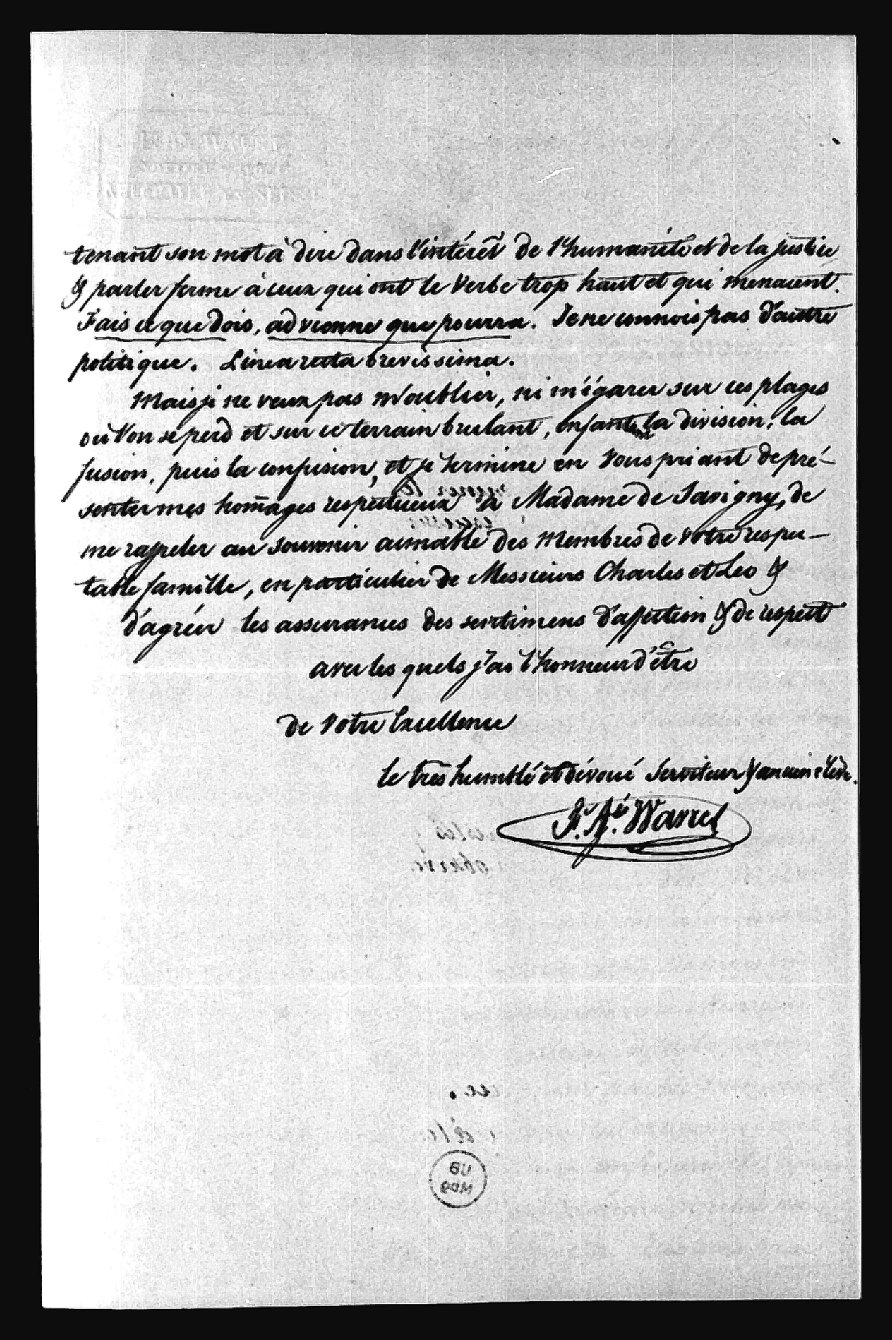 tenant son mot à dire dans l'intérêt de l'humanité et de la justice
& parler ferme à ceux qui ont le verbe trop haut et qui menacent.
Fais ce que dois, advienne que pourra. Je ne connois pas d'autre
politique. Linea recta brevissima.
Mais je ne veux pas m'oublier, ni m'égarer sur ces plages
où l'on se perd et sur ce terrain brulant, enfante la division, la
fusion, puis la confusion, et je termine en vous priant de pré-
senter mes hom̄ages respectueux à Madame de Savigny, de
me rappeler au souvenir aimable des Membres de votre respec-
table famille, en particulier de Messieurs Charles et Leo &
d'agréer les assurances des sentimens d'affection & de respect
avec les quels j'ai l'honneur d'être
de Votre Excellence
le très humble et dévoué serviteur & ancien élève.
BU
MDB